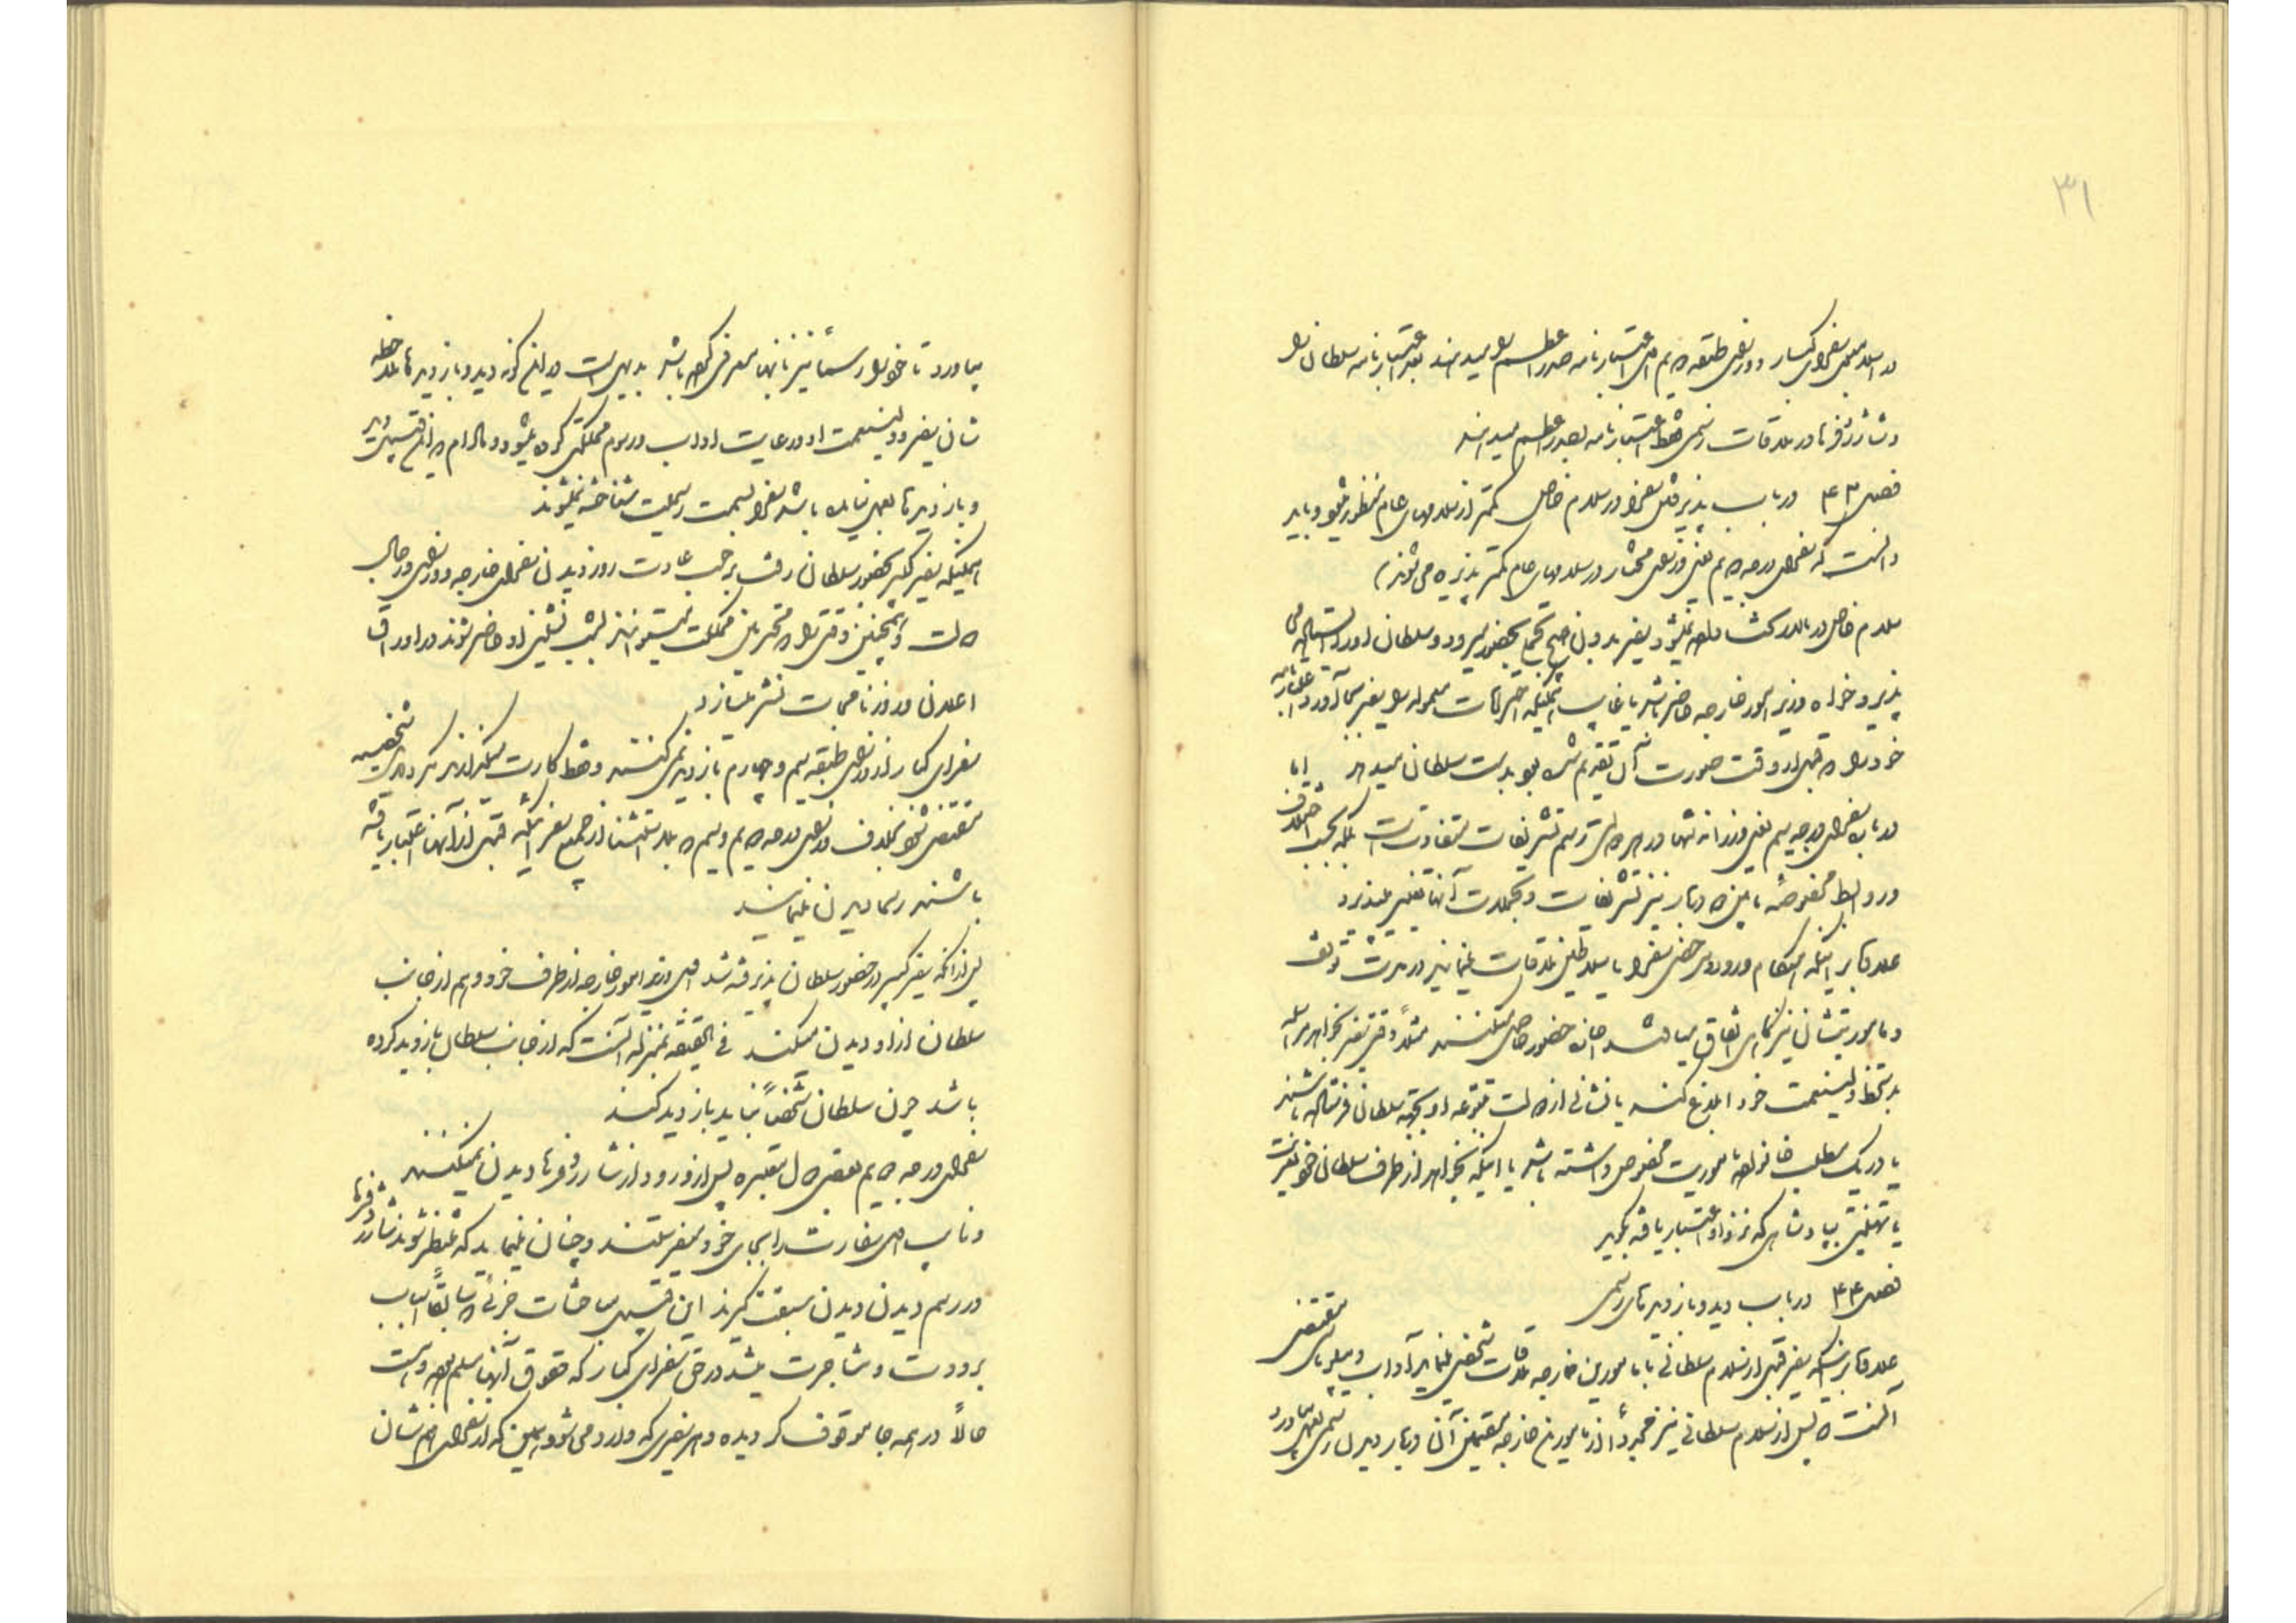 ۳۱
در اسلامبول سفرای کبار و وزرای طبقه دویم اول اعتبارنامه صدر اعظم را میدهند بعد اعتبارنامه سلطان را
و شارژدفرها در ملاقات رسمی فقط اعتبارنامه بصدر اعظم میدهند
فصل ۴۳ در باب پذیرفتن سفرا در سلام خاص کمتر از سلامهای عام منظور میشود و باید
دانست که سفرای درجه دویم یعنی وزرای مختار در سلامهای عام کمتر پذیره می شوند
سلام خاص در تالار گشاده نمیشود سفیر بدون هیچ بحضور میرود و سلطان او را ایستاده می
پذیرد خواه وزیر امور خارجه حاضر باشد یا غایب اینکه احترامات معموله را سفیر بجا آورد و اعتبارنامه
خود را که قبل از وقت صورت آن تقدیم شده بود بدست سلطان میدهد اما
در باب سفرای درجه سیم یعنی وزرا نه تنها در هر دولت رسم تشریفات متفاوت است بلکه بحسب اختلاف
و روابط مخصوصه مابین دو دربار نیز تشریفات و تجملات آنها تغییر میپذیرد
علاوه بر اینکه هنگام ورود و مرخصی سفرا با سلاطین ملاقات مینمایند در مدت توقف
و مأموریتشان نیز گاهی اتفاق میافتد که چنان حضور حاصل میکنند مثلاً وقتی سفیر بخواهد مراسله
بدستخط ولینعمت خود ابلاغ کند یا نشانی از دولت متبوعه او بجهة سلطان فرستاده باشند
یا در یک مطلب خاص مأموریت مخصوص داشته باشد یا اینکه بخواهد از طرف سلطان خود تعزیت
یا تهنیتی بپادشاهی که نزد او اعتبار یافته بگوید
فصل ۴۴ در باب دید و بازدیدهای رسمی
علاوه بر اینکه سفیر قبل از سلام سلطانی با مأمورین خارجه ملاقات شخصی نماید آداب و سلوک مقتضی
آنست که پس از سلام سلطانی نیز مجدداً از مأمورین خارجه مقیمین آن دربار دیدن رسمی بعمل بیاورد
بیاورد تا خود را رسماً نیز بآنها معرفی کرده باشد بدیهی است در این گونه دید و بازدیدها ملاحظه
شأن سفیر و ولینعمت او و رعایت آداب و رسوم مملکتی کرده میشود و مادام که این قسم دید
و بازدیدها بعمل نیامده باشد سفرا بسمت رسمیت شناخته نمیشوند
همینکه سفیر کبیر بحضور سلطان رفت برحسب عادت روز دیدن سفرای خارجه و وزرای و رجال
دولت و همچنین وقتی را که محترمین مملکت میتوانند بشب نشینی او حاضر شوند در اوراق
اعلان و روزنامجات نشر میسازد
سفرای کبار از وزرای طبقه سیم و چهارم بازدید نمی کنند و فقط کارت میگذارند مگر در موارد شخصیه
مقتضی شود بخلاف وزرای درجه دویم و سیم که بلااستثنا از جمیع سفرائیکه قبل از آنها اعتبار یافته
باشند رسماً دیدن مینمایند
پس از آنکه سفیر کبیر در حضور سلطان پذیرفته شد اول وزیر امور خارجه از طرف خود و هم از جانب
سلطان از او دیدن میکند فی الحقیقه بمنزله آنست که از جانب سلطان بازدید کرده
باشد چون سلطان شخصاً نباید بازدید کند
سفرای درجه دویم بعضی دول معتبره پس از ورود از شارژدفرها دیدن نمیکنند
و نایب اول سفارت را بجای خود میفرستند و چنان مینماید که منتظر شوند شارژدفرها
در رسم دیدن دیدن سبقت گیرند این قبیل مباحثات جزئی که سابقاً اسباب
برودت و مشاجرت میشد در حق سفرای کبار که حقوق آنها مسلم بوده و هست
حالاً در همه جا موقوف گردیده و هر سفیری که وارد می شود همین که از سفرای هم شأن